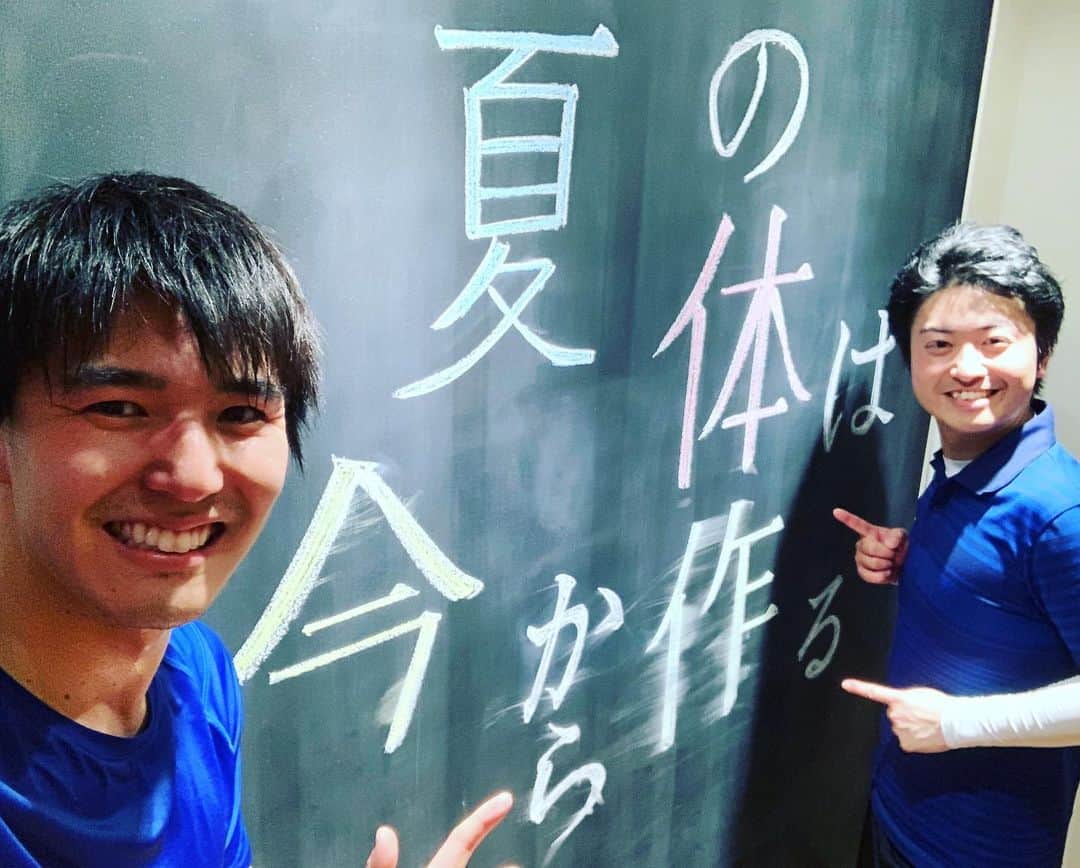 夏の体は
今から作る